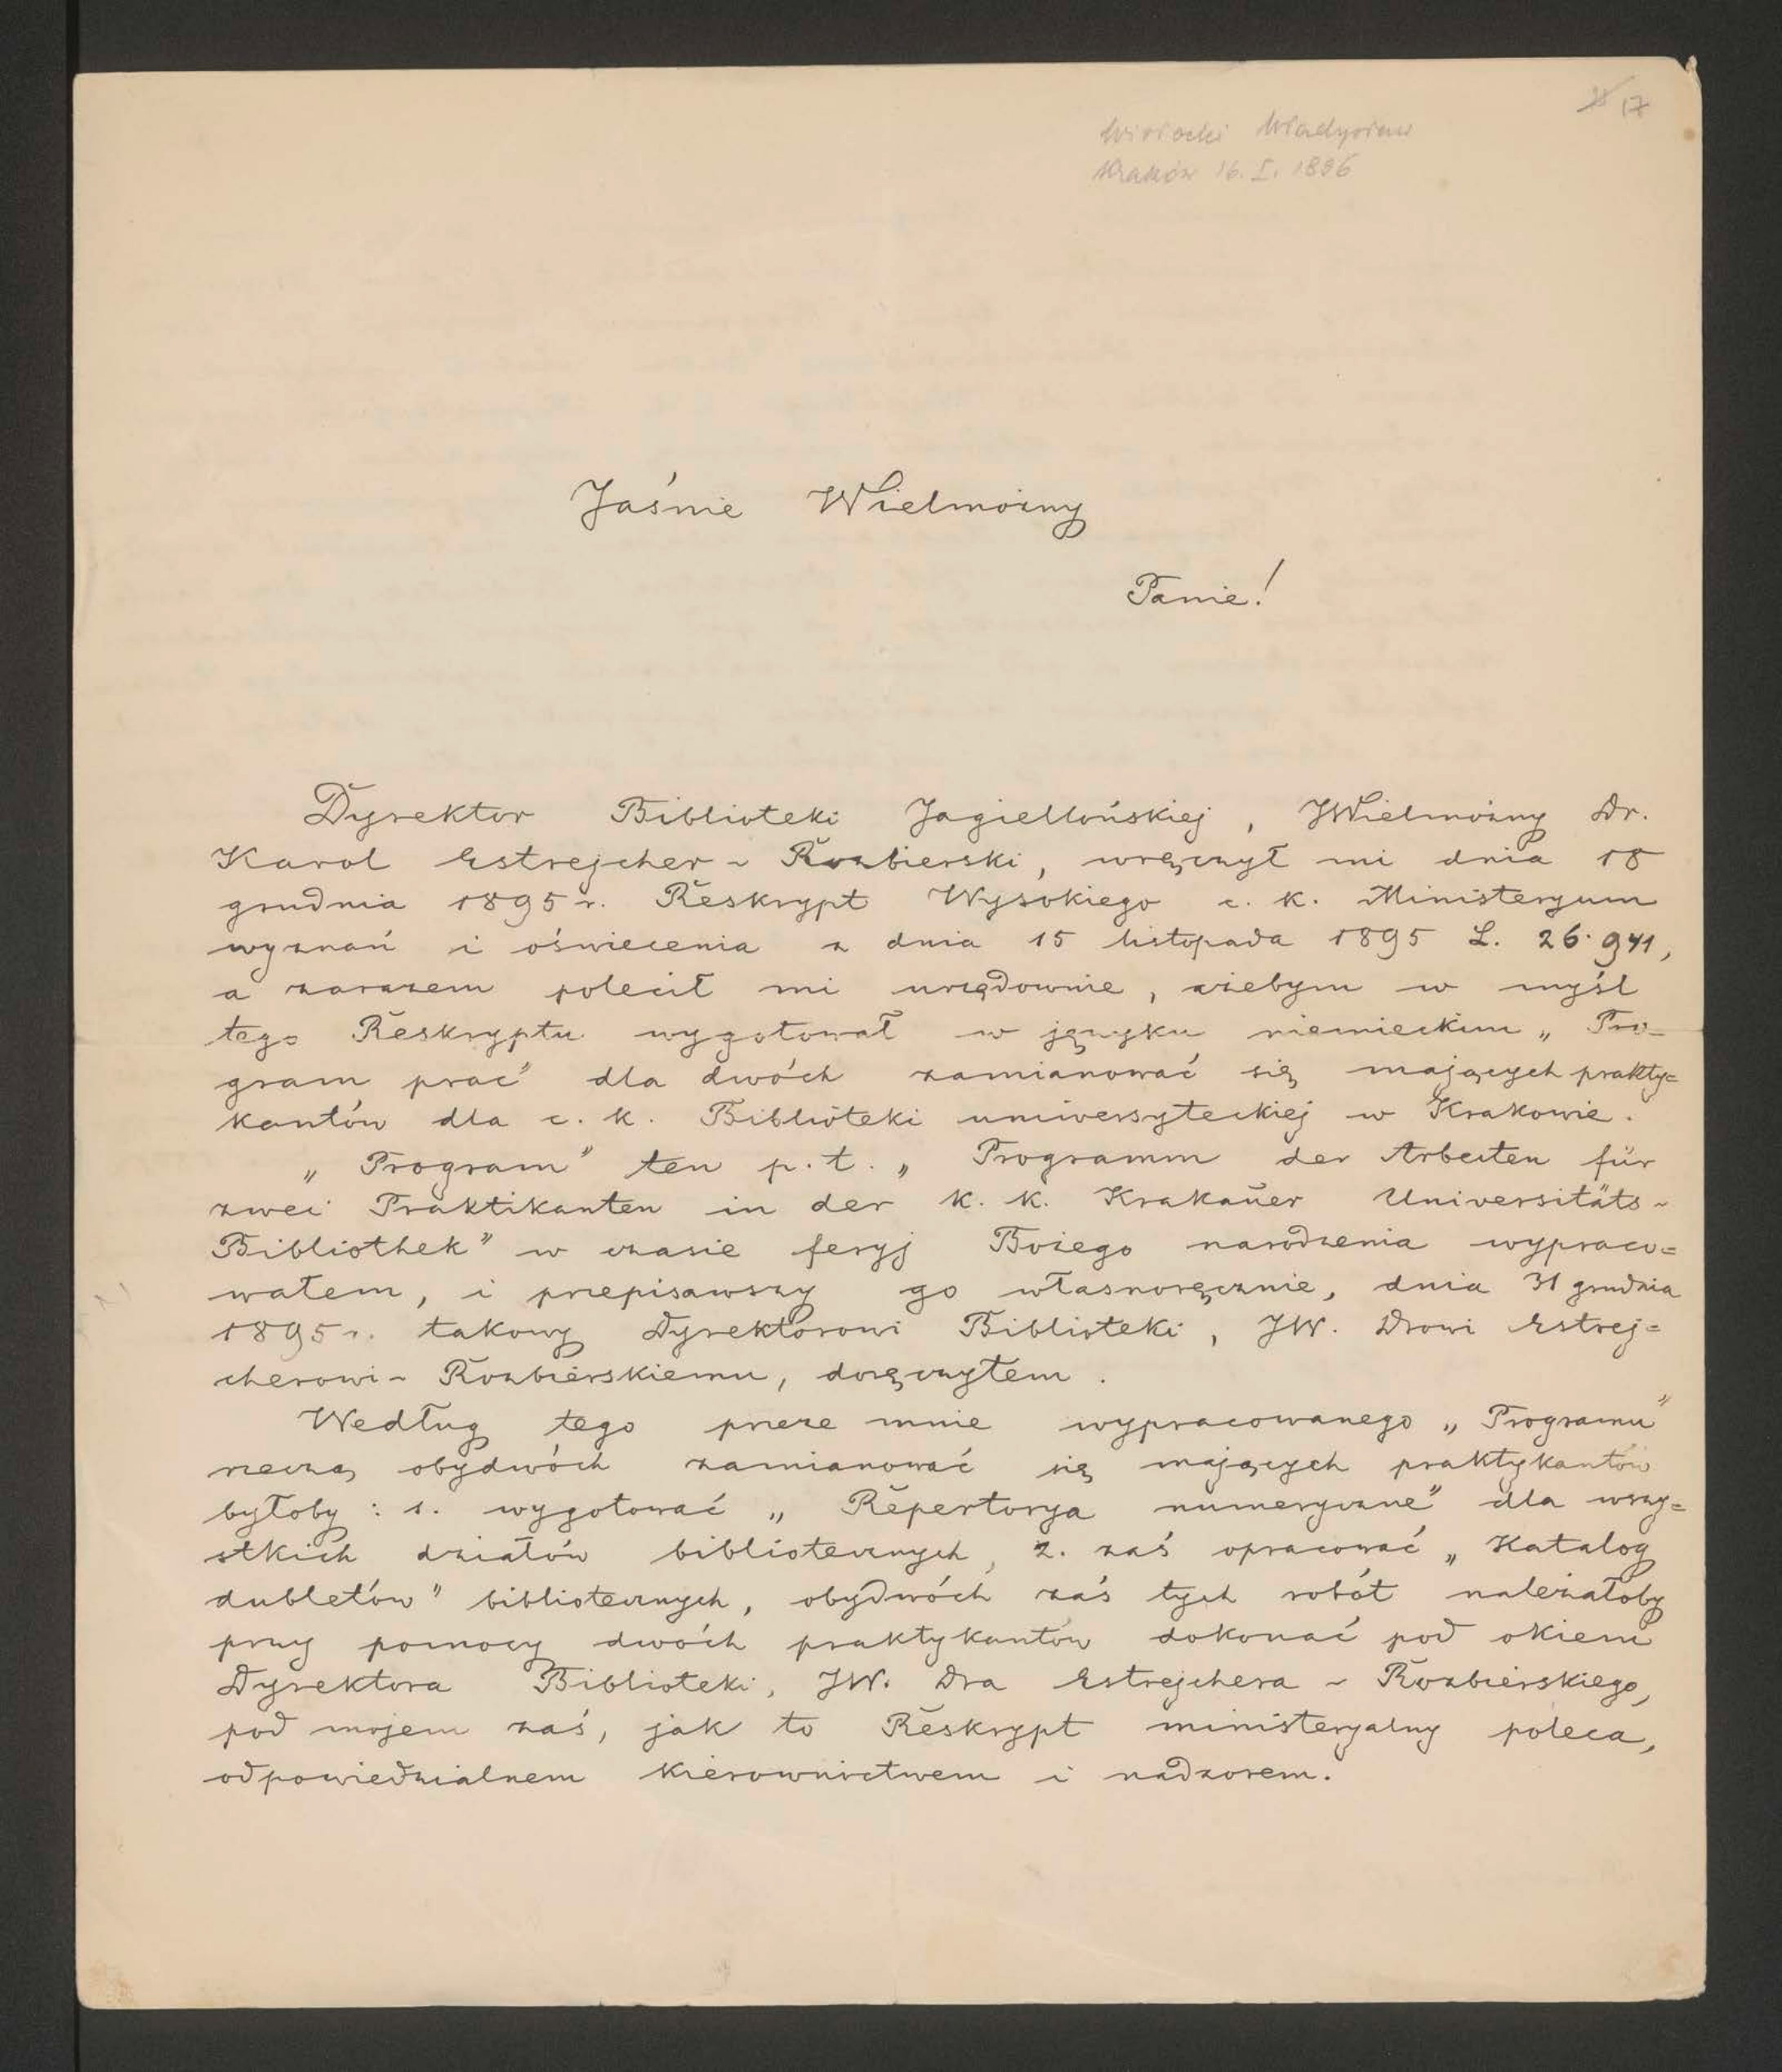 17
Wisłocki Władysław
Kraków 16. I. 1896
Jaśnie Wielmożny
Panie!
Dyrektor Biblioteki Jagiellońskiej, JWielmożny Dr.
Karol Estrejcher - Rozbierski, wręczył mi dnia 18
grudnia 1895 r. Reskrypt Wysokiego c. k. Ministeryum
wyznań i oświecenia z dnia 15 listopada 1895 L. 26.941,
a zarazem polecił mi urzędownie, ażebym w myśl
tego Reskryptu wygotował w języku niemieckim „Pro-
gram prac" dla dwóch zamianować się mających prakty=
kantów dla c. k. Biblioteki uniwersyteckiej w Krakowie.
„Program" ten p. t. „Programm der Arbeiten für
zwei Praktikanten in der k. k. Krakauer Universitäts-
Bibliothek" w czasie feryj Bożego narodzenia wypraco=
wałem, i przepisawszy go własnoręcznie, dnia 31 grudnia
1895 r. takowy Dyrektorowi Biblioteki, JW. Drowi Estrej=
cherowi - Rozbierskiemu, doręczyłem.
Według tego przeze mnie wypracowanego „Programu"
rzeczą obydwóch zamianować się mających praktykantów
byłoby: 1. wygotować „Repertorya numeryczne" dla wszy=
stkich działów bibliotecznych, 2. zaś opracować „Katalog
dubletów" bibliotecznych, obydwóch zaś tych robót należałoby
przy pomocy dwóch praktykantów dokonać pod okiem
Dyrektora Biblioteki, JW. Dra Estrejchera - Rozbierskiego,
pod mojem zaś, jak to Reskrypt ministeryalny poleca,
odpowiedzialnem kierownictwem i nadzorem.